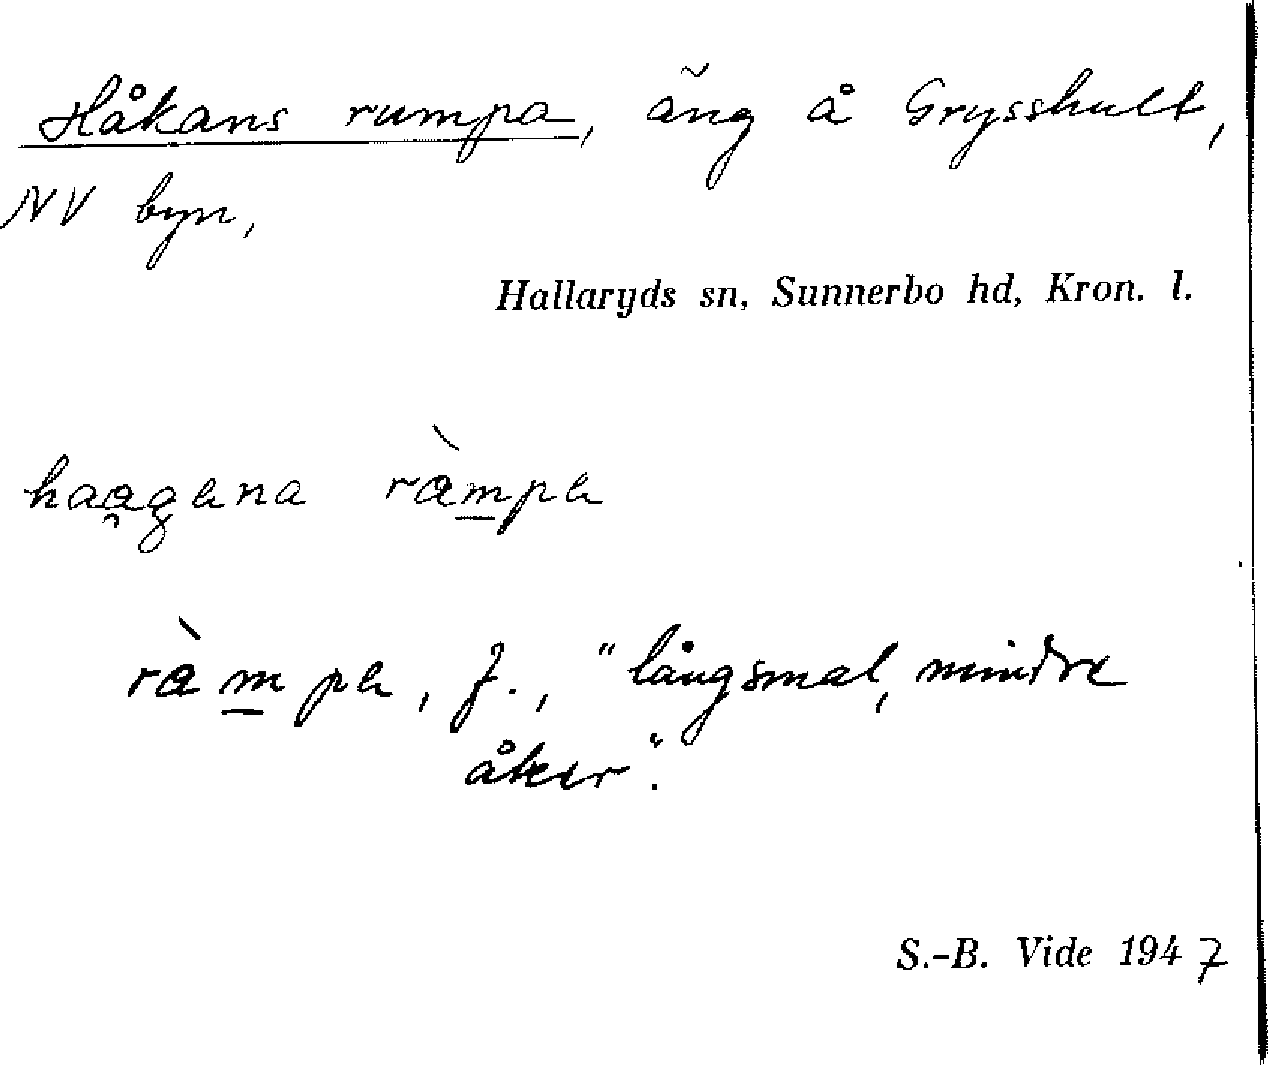 Håkans rumpa, äng å Grysshult,
NV byn,
Hallaryds sn, Sunnerbo hd, Kron. l.
, f., "långsmal, mindre
åker".
S.-B. Vide 1947